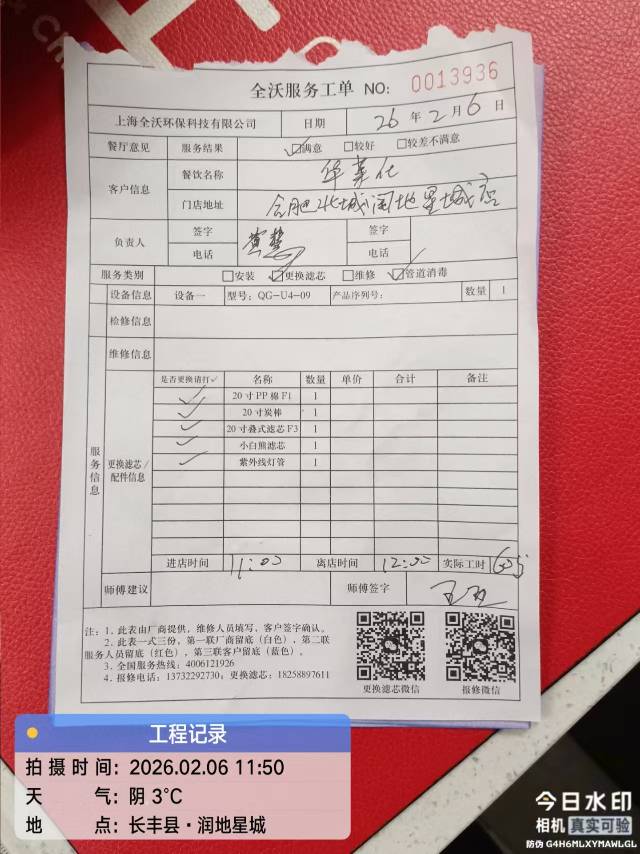 全沃服务工单 NO: 0013936
上海全沃环保科技有限公司 日期 26 年 2 月 6 日
餐厅意见 服务结果 ☑满意 □较好 □较差不满意
客户信息 餐饮名称 华莱仕
门店地址 合肥北城润地星城店
负责人 签字 签字
电话 电话
服务类别 □安装 ☑更换滤芯 □维修 ☑管道消毒
设备信息 设备一 型号: QG-U4-09 产品序列号: 数量 1
检修信息
维修信息
服务信息
更换滤芯/配件信息
是否更换请打✓ 名称 数量 单价 合计 备注
✓ 20寸PP棉F1 1
✓ 20寸炭棒 1
✓ 20寸叠式滤芯F3 1
✓ 小白熊滤芯 1
✓ 紫外线灯管 1
进店时间 11:00 离店时间 12:00 实际工时 60分
师傅建议 师傅签字
注: 1、此表由厂商提供,维修人员填写,客户签字确认。
2、此表一式三份,第一联厂商留底(白色),第二联
服务人员留底(红色),第三联客户留底(蓝色)。
3、全国服务热线: 4006121926
4、报修电话: 13732292730; 更换滤芯: 18258897611
更换滤芯微信 报修微信
工程记录
拍摄时间: 2026.02.06 11:50
天 气: 阴 3℃
地 点: 长丰县·润地星城
今日水印
相机 真实可验
防伪 G4H6MLXYMAWLGL